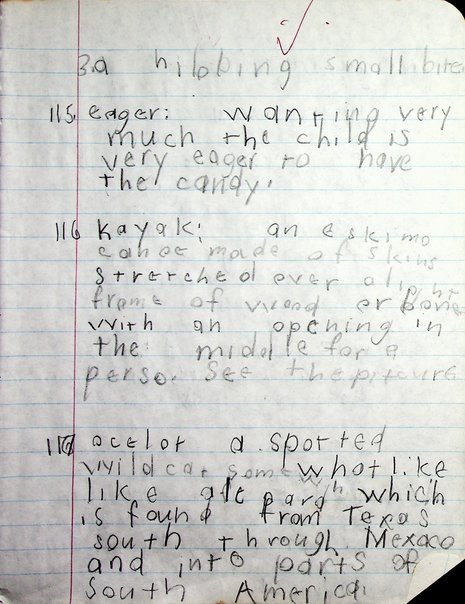 3.a hibbing small bite
115 eager: wanting very
much the child is
very eager to have
the candy.
116 kayak: an eskimo
canoe made of skins
stretched over a light
frame of wood or bone
with an opening in
the middle for a
perso. See the pitcure
117 ocelot a spotted
wild cat somewhat like
like a which
is found from Texas
south through Mexaco
and into parts of
South America.